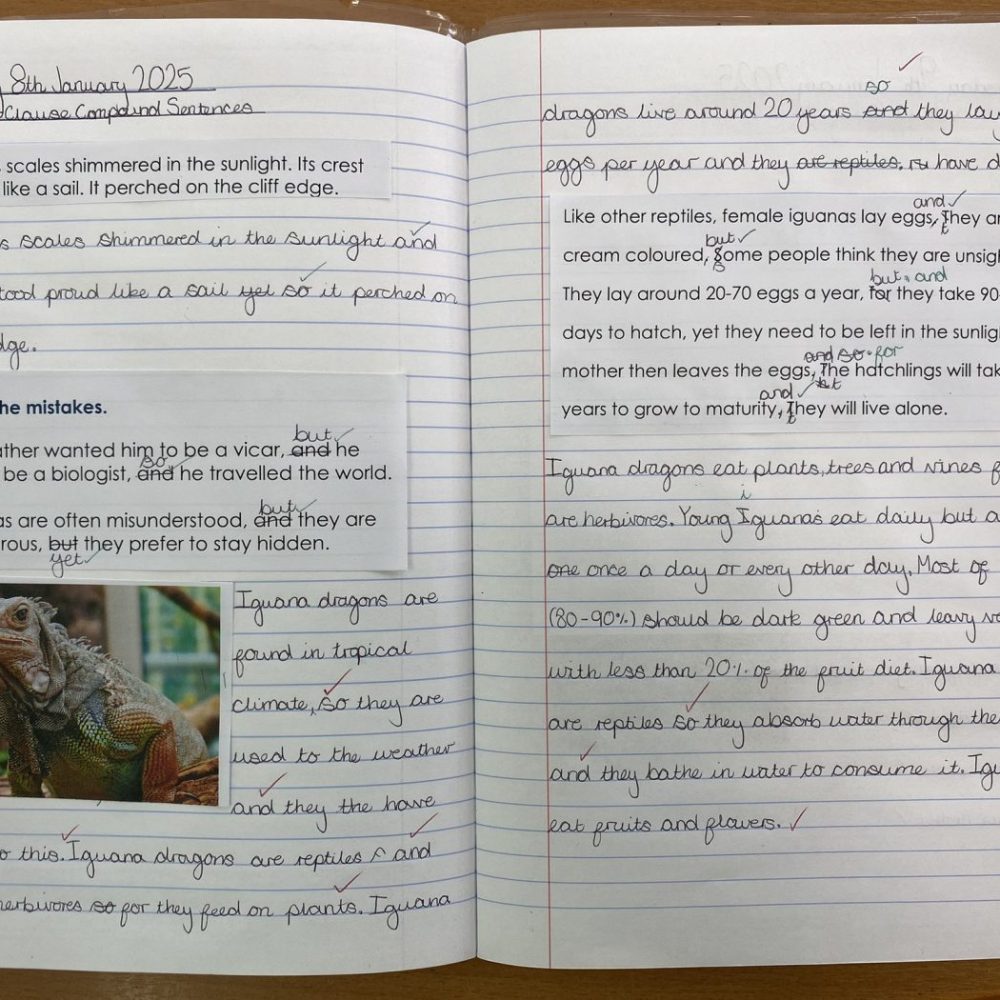 8th January 2025
Clause Compound Sentences
scales shimmered in the sunlight. Its crest
like a sail. It perched on the cliff edge.
s scales shimmered in the sunlight and
tood proud like a sail yet so it perched on
dge.
he mistakes.
but
ather wanted him to be a vicar, and he
so
be a biologist, and he travelled the world.
but
as are often misunderstood, and they are
rous, but they prefer to stay hidden.
yet
Iguana dragons are
found in tropical
climate, so they are
used to the weather
and they the have
o this. Iguana dragons are reptiles and
herbivores so for they feed on plants. Iguana
so
dragons live around 20 years and they lay
eggs per year and they are reptiles. have d
and
Like other reptiles, female iguanas lay eggs, They ar
but
cream coloured, Some people think they are unsigh
but and
They lay around 20-70 eggs a year, for they take 90
days to hatch, yet they need to be left in the sunlig
and so for
mother then leaves the eggs, The hatchlings will tak
and
years to grow to maturity, They will live alone.
Iguana dragons eat plants, trees and vines f
i
are herbivores. Young Iguanas eat daily but a
one once a day or every other day. Most of
(80-90%) should be dark green and leavy ve
with less than 20% of the fruit diet. Iguana
are reptiles so they absorb water through the
and they bathe in water to consume it. Igu
eat fruits and flowers.